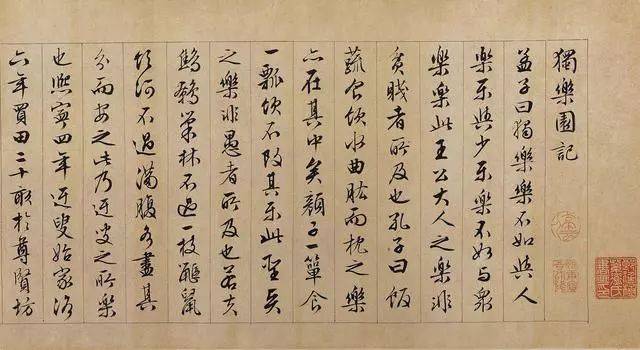 獨樂園記
孟子曰獨樂樂不如與人
樂樂與少樂樂不如与衆
樂樂此王公大人之樂非
貧賤者所及也孔子曰飯
蔬食飲水曲肱而枕之樂
亦在其中矣顏子一簞食
一瓢飲不改其樂此聖賢
之樂非愚者所及也若夫
鷦鷯巢林不過一枝鼴鼠
飲河不過滿腹各盡其
分而安之此乃迂叟之所樂
也熙寧四年迂叟始家洛
六年買田二十畝於尊賢坊